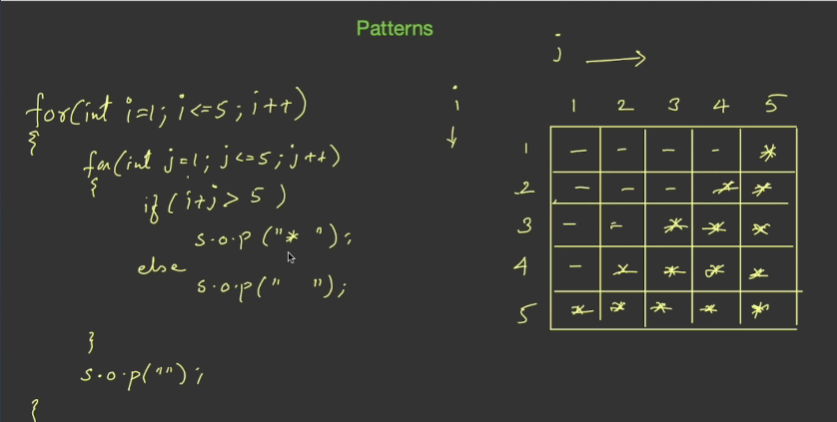 Patterns
j →
for(int i=1; i<=5; i++)
{
for(int j=1; j<=5; j++)
{
if(i+j > 5)
s.o.p("* ");
else
s.o.p("  ");
}
s.o.p("");
}
i
↓
1 2 3 4 5
1 - - - - *
2 - - - * *
3 - - * * *
4 - * * * *
5 * * * * *